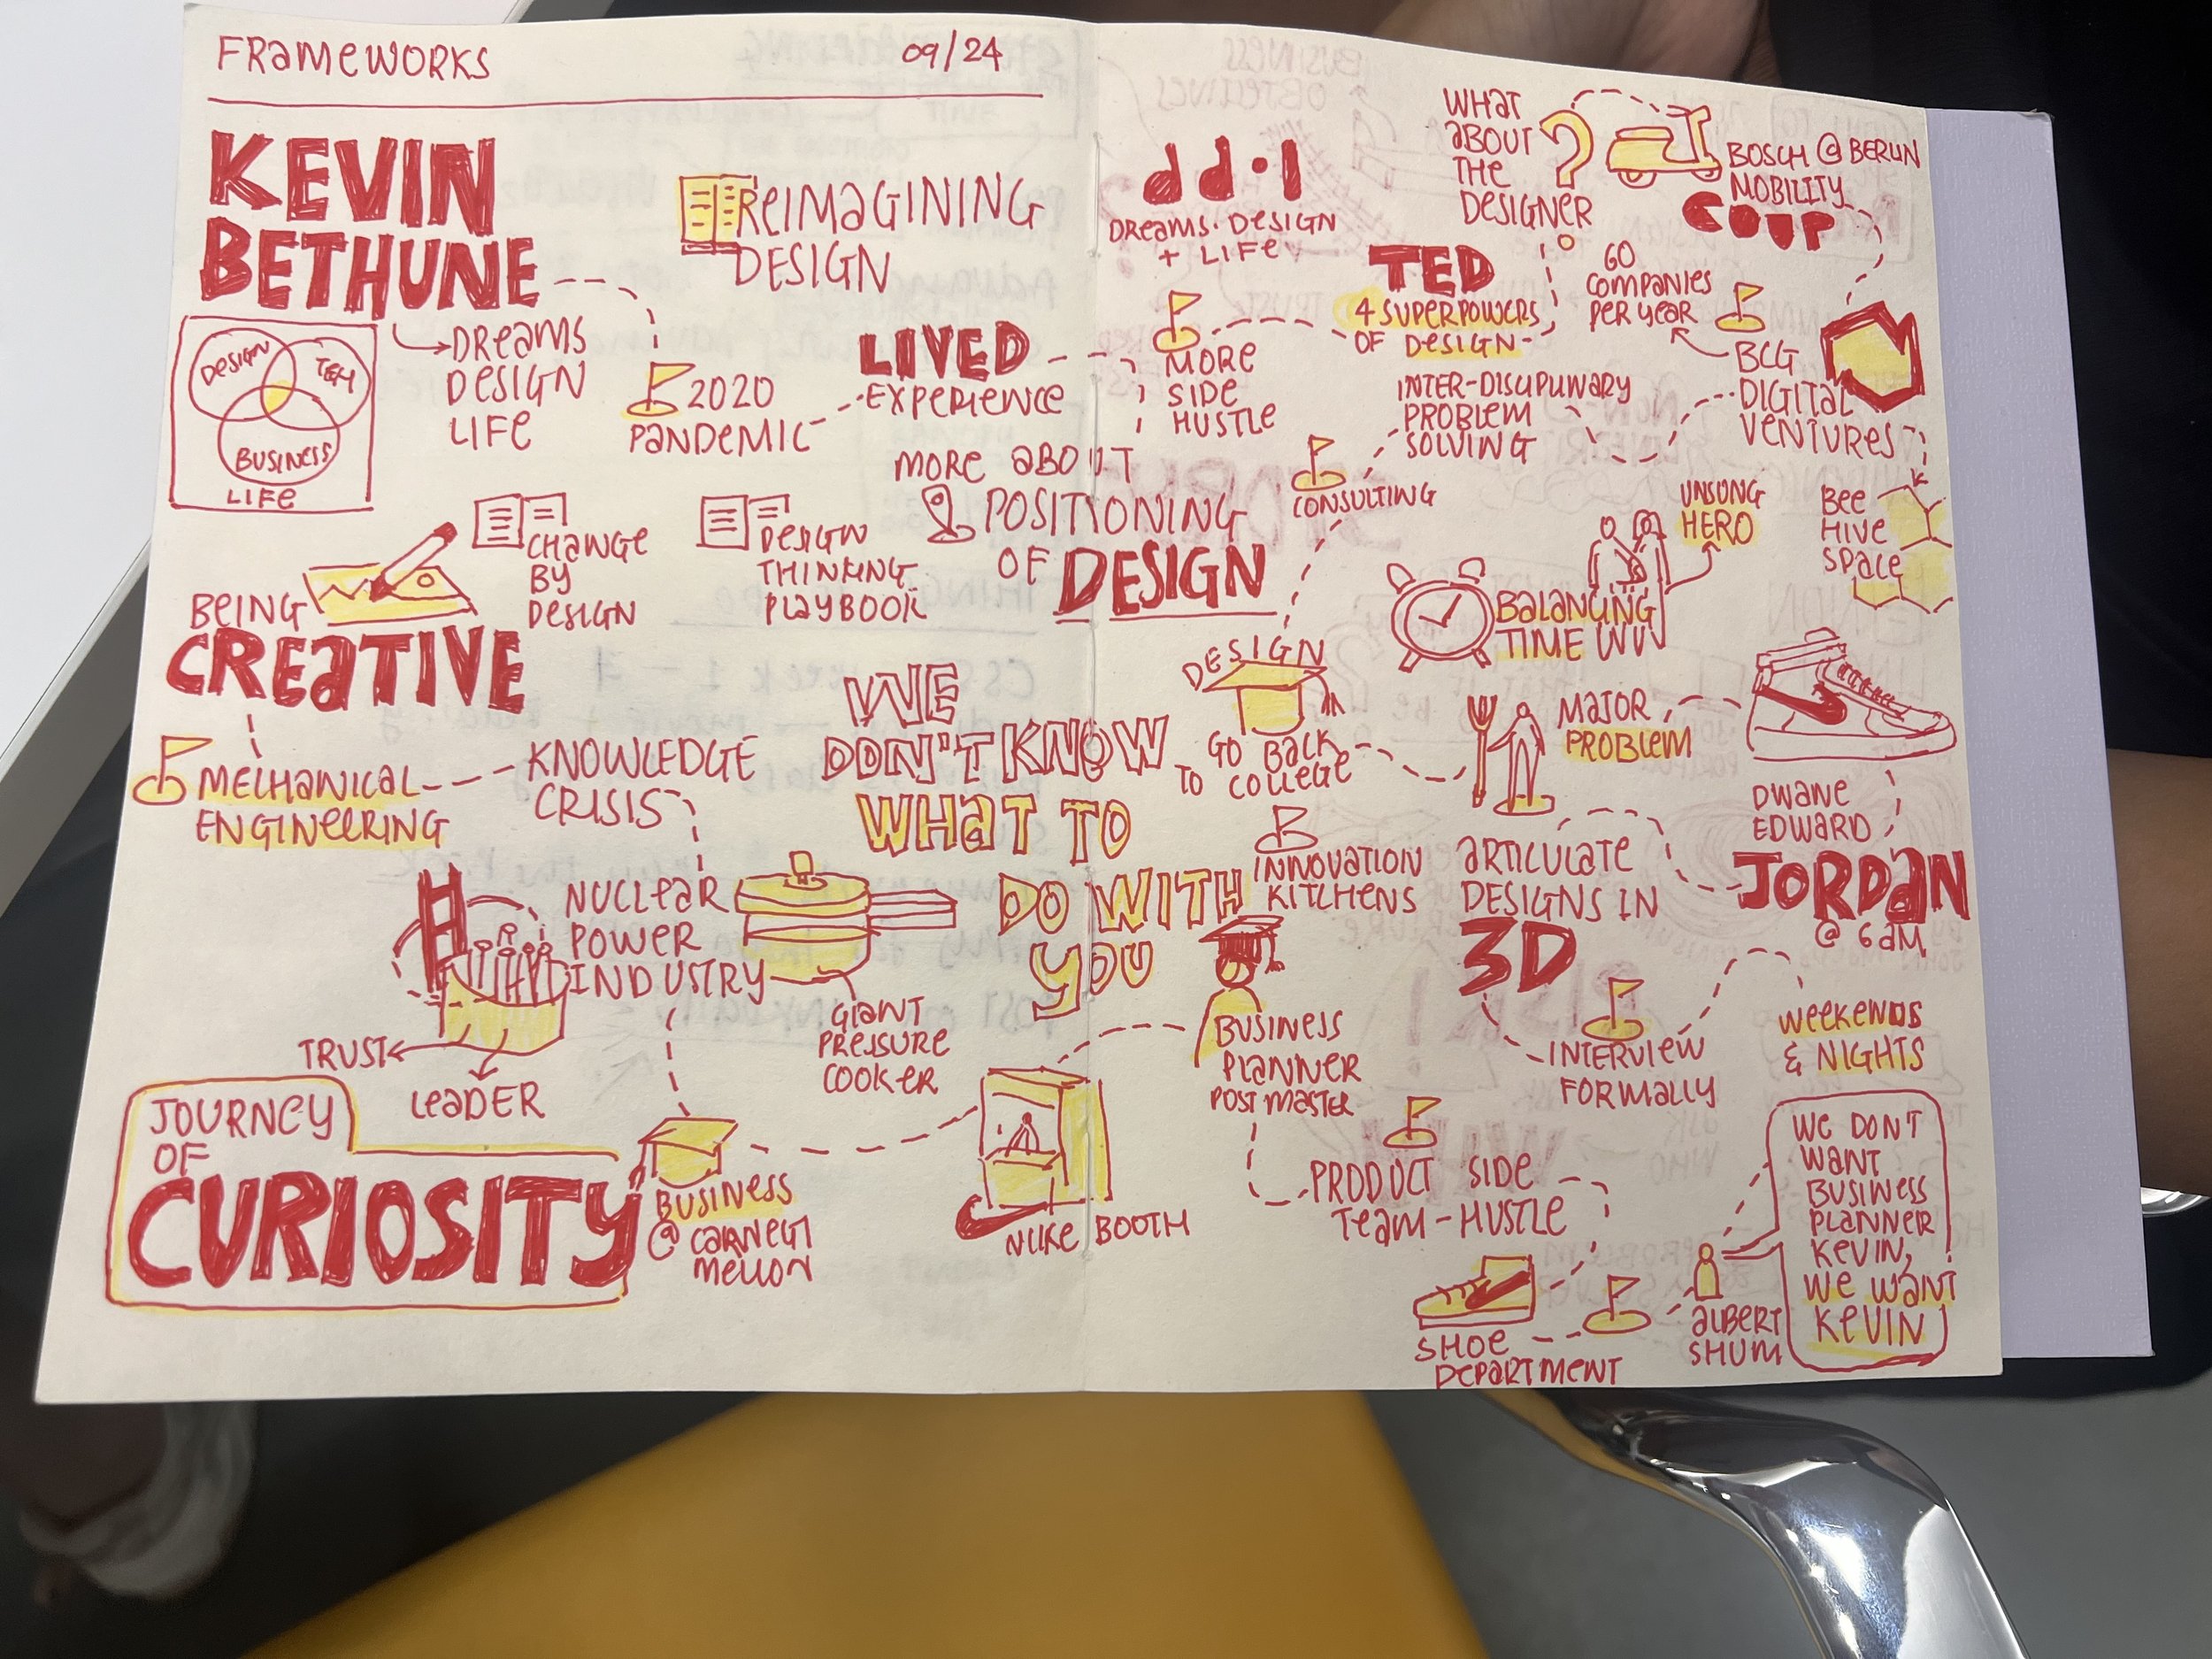 FRAMEWORKS
09/24
KEVIN
BETHUNE
DREAMS
DESIGN
LIFE
DESIGN
TECH
BUSINESS
LIFE
REIMAGINING
DESIGN
2020
PANDEMIC
LIVED
EXPERIENCE
MORE ABOUT
POSITIONING
OF DESIGN
BEING
CREATIVE
CHANGE
BY
DESIGN
DESIGN
THINKING
PLAYBOOK
MECHANICAL
ENGINEERING
KNOWLEDGE
CRISIS
WE
DON'T KNOW
WHAT TO
DO WITH
YOU
NUCLEAR
POWER
INDUSTRY
GIANT
PRESSURE
COOKER
TRUST
LEADER
JOURNEY
OF
CURIOSITY
BUSINESS
@ CARNEGI
MELLON
NIKE BOOTH
dd.1
DREAMS. DESIGN
+ LIFE
MORE
SIDE
HUSTLE
TED
4 SUPERPOWERS
OF DESIGN
WHAT
ABOUT
THE
DESIGNER
?
BOSCH @ BERLIN
MOBILITY
COUP
60
COMPANIES
PER YEAR
BCG
DIGITAL
VENTURES
INTER-DISCIPLINARY
PROBLEM
SOLVING
CONSULTING
BEE
HIVE
SPACE
UNSUNG
HERO
BALANCING
TIME W
DESIGN
GO BACK
TO COLLEGE
MAJOR
PROBLEM
DWANE
EDWARD
JORDAN
@ 6 AM
INNOVATION
KITCHENS
ARTICULATE
DESIGNS IN
3D
INTERVIEW
FORMALLY
WEEKENDS
& NIGHTS
BUSINESS
PLANNER
POST MASTER
PRODUCT SIDE
TEAM - HUSTLE
SHOE
DEPARTMENT
ALBERT
SHUM
WE DON'T
WANT
BUSINESS
PLANNER
KEVIN,
WE WANT
KEVIN